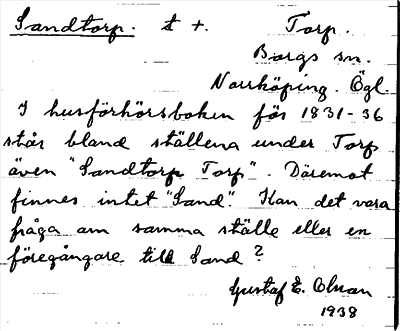 Sandtorp. t +. Torp.
Borgs sn.
Norrköping. Ögl.
I husförhörsboken för 1831-36
står bland ställena under Torp
även "Sandtorp Torp". Däremot
finnes intet "Sand". Kan det vara
fråga om samma ställe eller en
föregångare till Sand?
Gustaf E.
1938